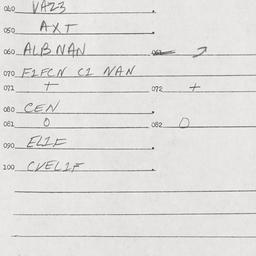 040 VAZ3
050 AXT
060 ALBNAN
070 FIFCN CI NAN
071 + 072 +
080 CEN
081 0 082 0
090 ELIF
100 CVELIF